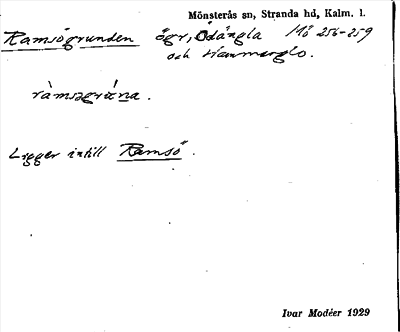 Mönsterås sn, Stranda hd, Kalm. l.
Ramsögrunden ögr, Ödängla Mö 256-259
och Hammarglo.
Ligger intill Ramsö.
Ivar Modéer 1929